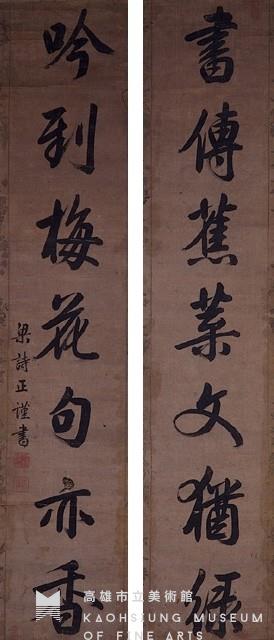 書傳蕉葉文猶綠
吟到梅花句亦香
梁詩正謹書
高雄市立美術館
KAOHSIUNG MUSEUM
OF FINE ARTS